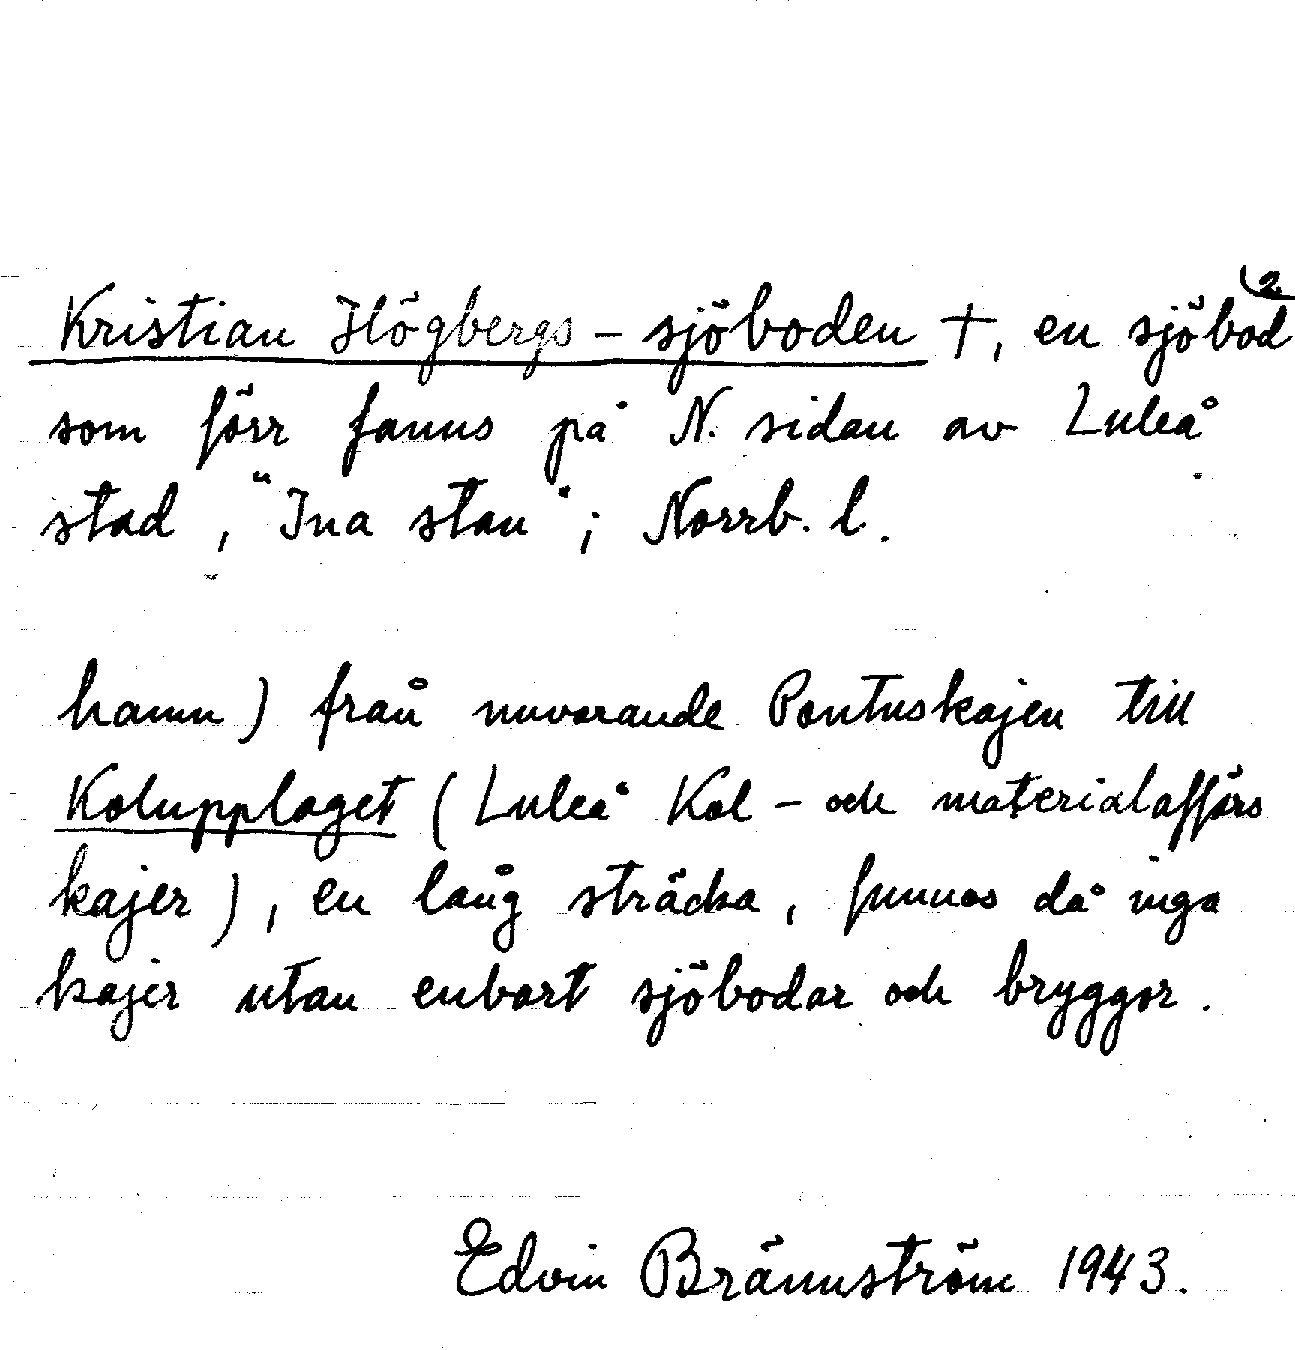 2
Kristian Högbergs-sjöboden †, en sjöbod
som förr fanns på N. sidan av Luleå
stad, "Ina stan"; Norrb. l.
hamn) från nuvarande Pontuskajen till
Kolupplaget (Luleå Kol- och materialaffärs
kajer), en lång sträcka, funnos då inga
kajer utan enbart sjöbodar och bryggor.
Edvin Brännström 1943.